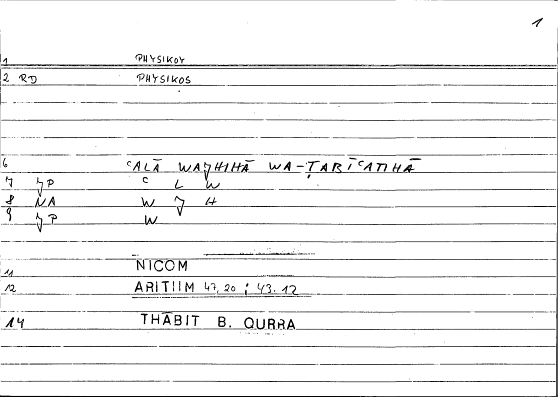 1
1 PHYSIKOY
2 RD PHYSIKOS
6 ʿALĀ WAJHIHĀ WA-ṬABĪʿATIHĀ
7 JP ʿ L W
8 NA W J H
9 JP W
11 NICOM
12 ARITIIM 47,20 ; 43.12
14 THĀBIT B. QURRA